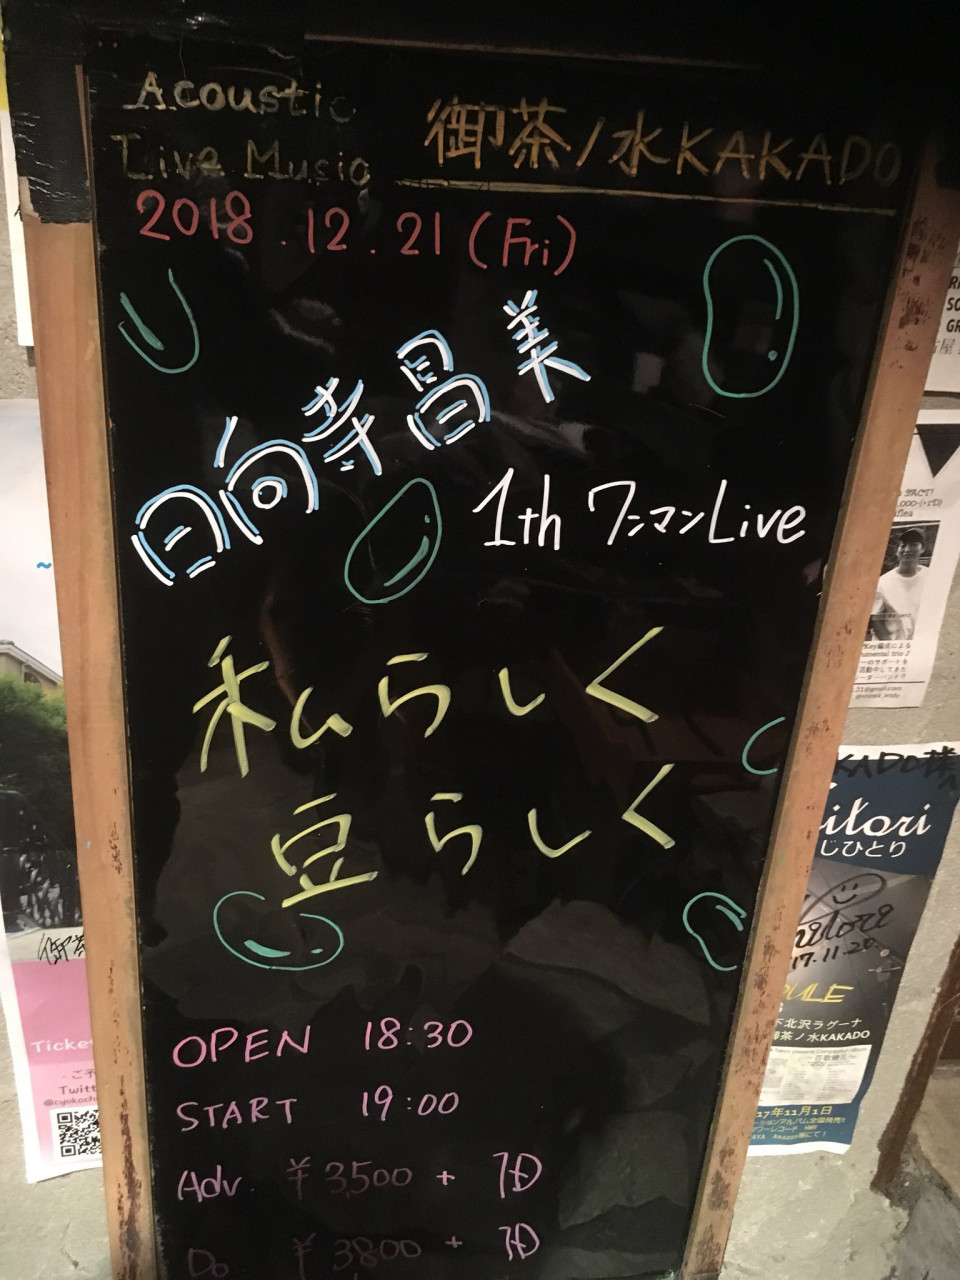 Acoustic
Live Music
御茶ノ水KAKADO
2018.12.21(Fri)
日向寺昌美
1th ワンマンLive
私らしく
豆らしく
OPEN 18:30
START 19:00
Adv. ¥3,500 + 1D
Do ¥3800 + 1D
KADO様
itori
じひとり
17.11.20
ULE
下北沢ラグーナ
御茶ノ水KAKADO
17年11月1日
Ticke
Twitt